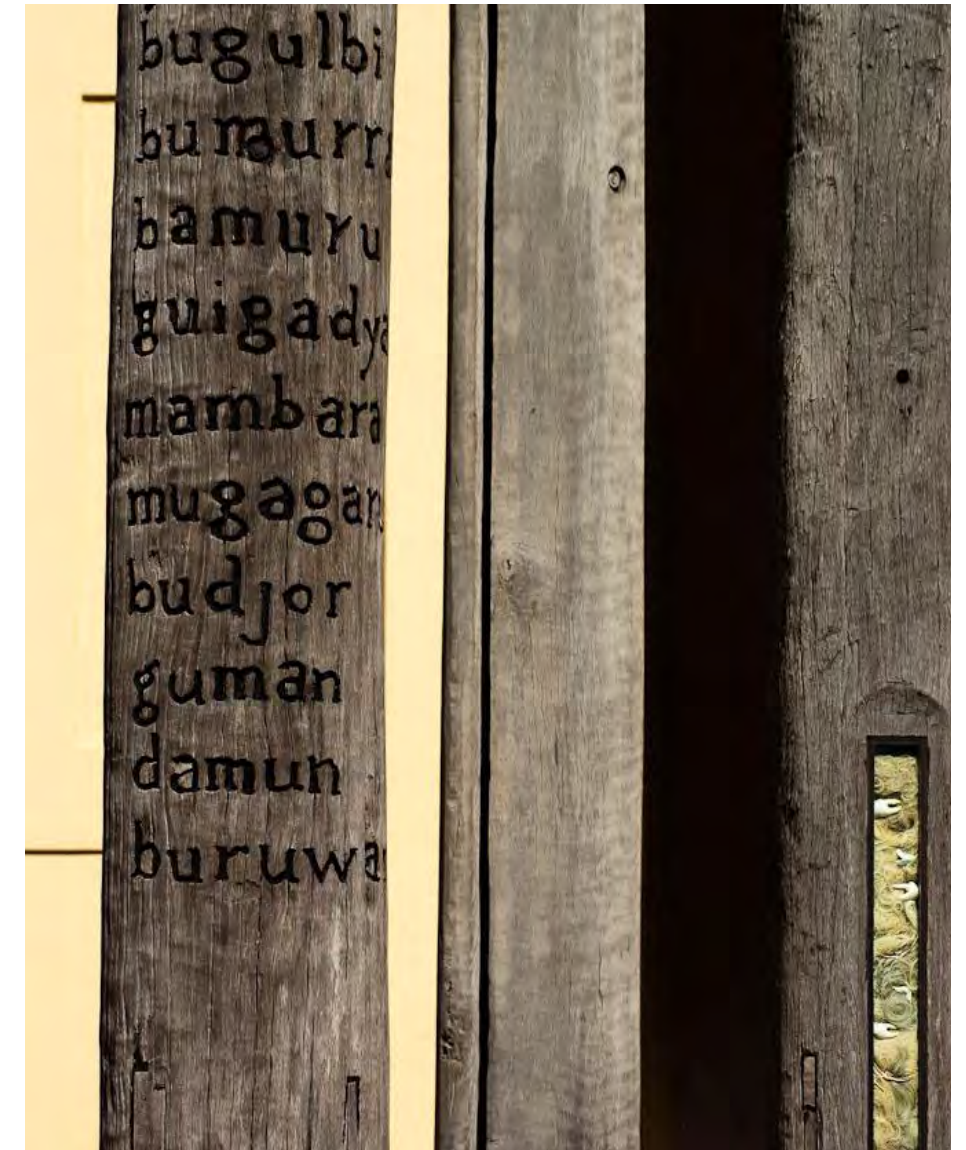 bugulbi
bumurr
bamuru
guigadya
mambara
mugagar
budjor
guman
damun
buruwa